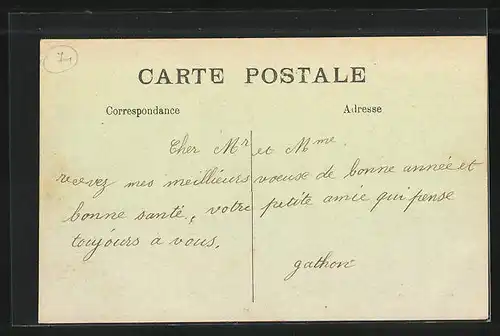 7
CARTE POSTALE
Correspondance Adresse
Cher Mr et Mme
recevez mes meillieurs voeuse de bonne année et
bonne santé, votre petite amie qui pense
toujours a vous.